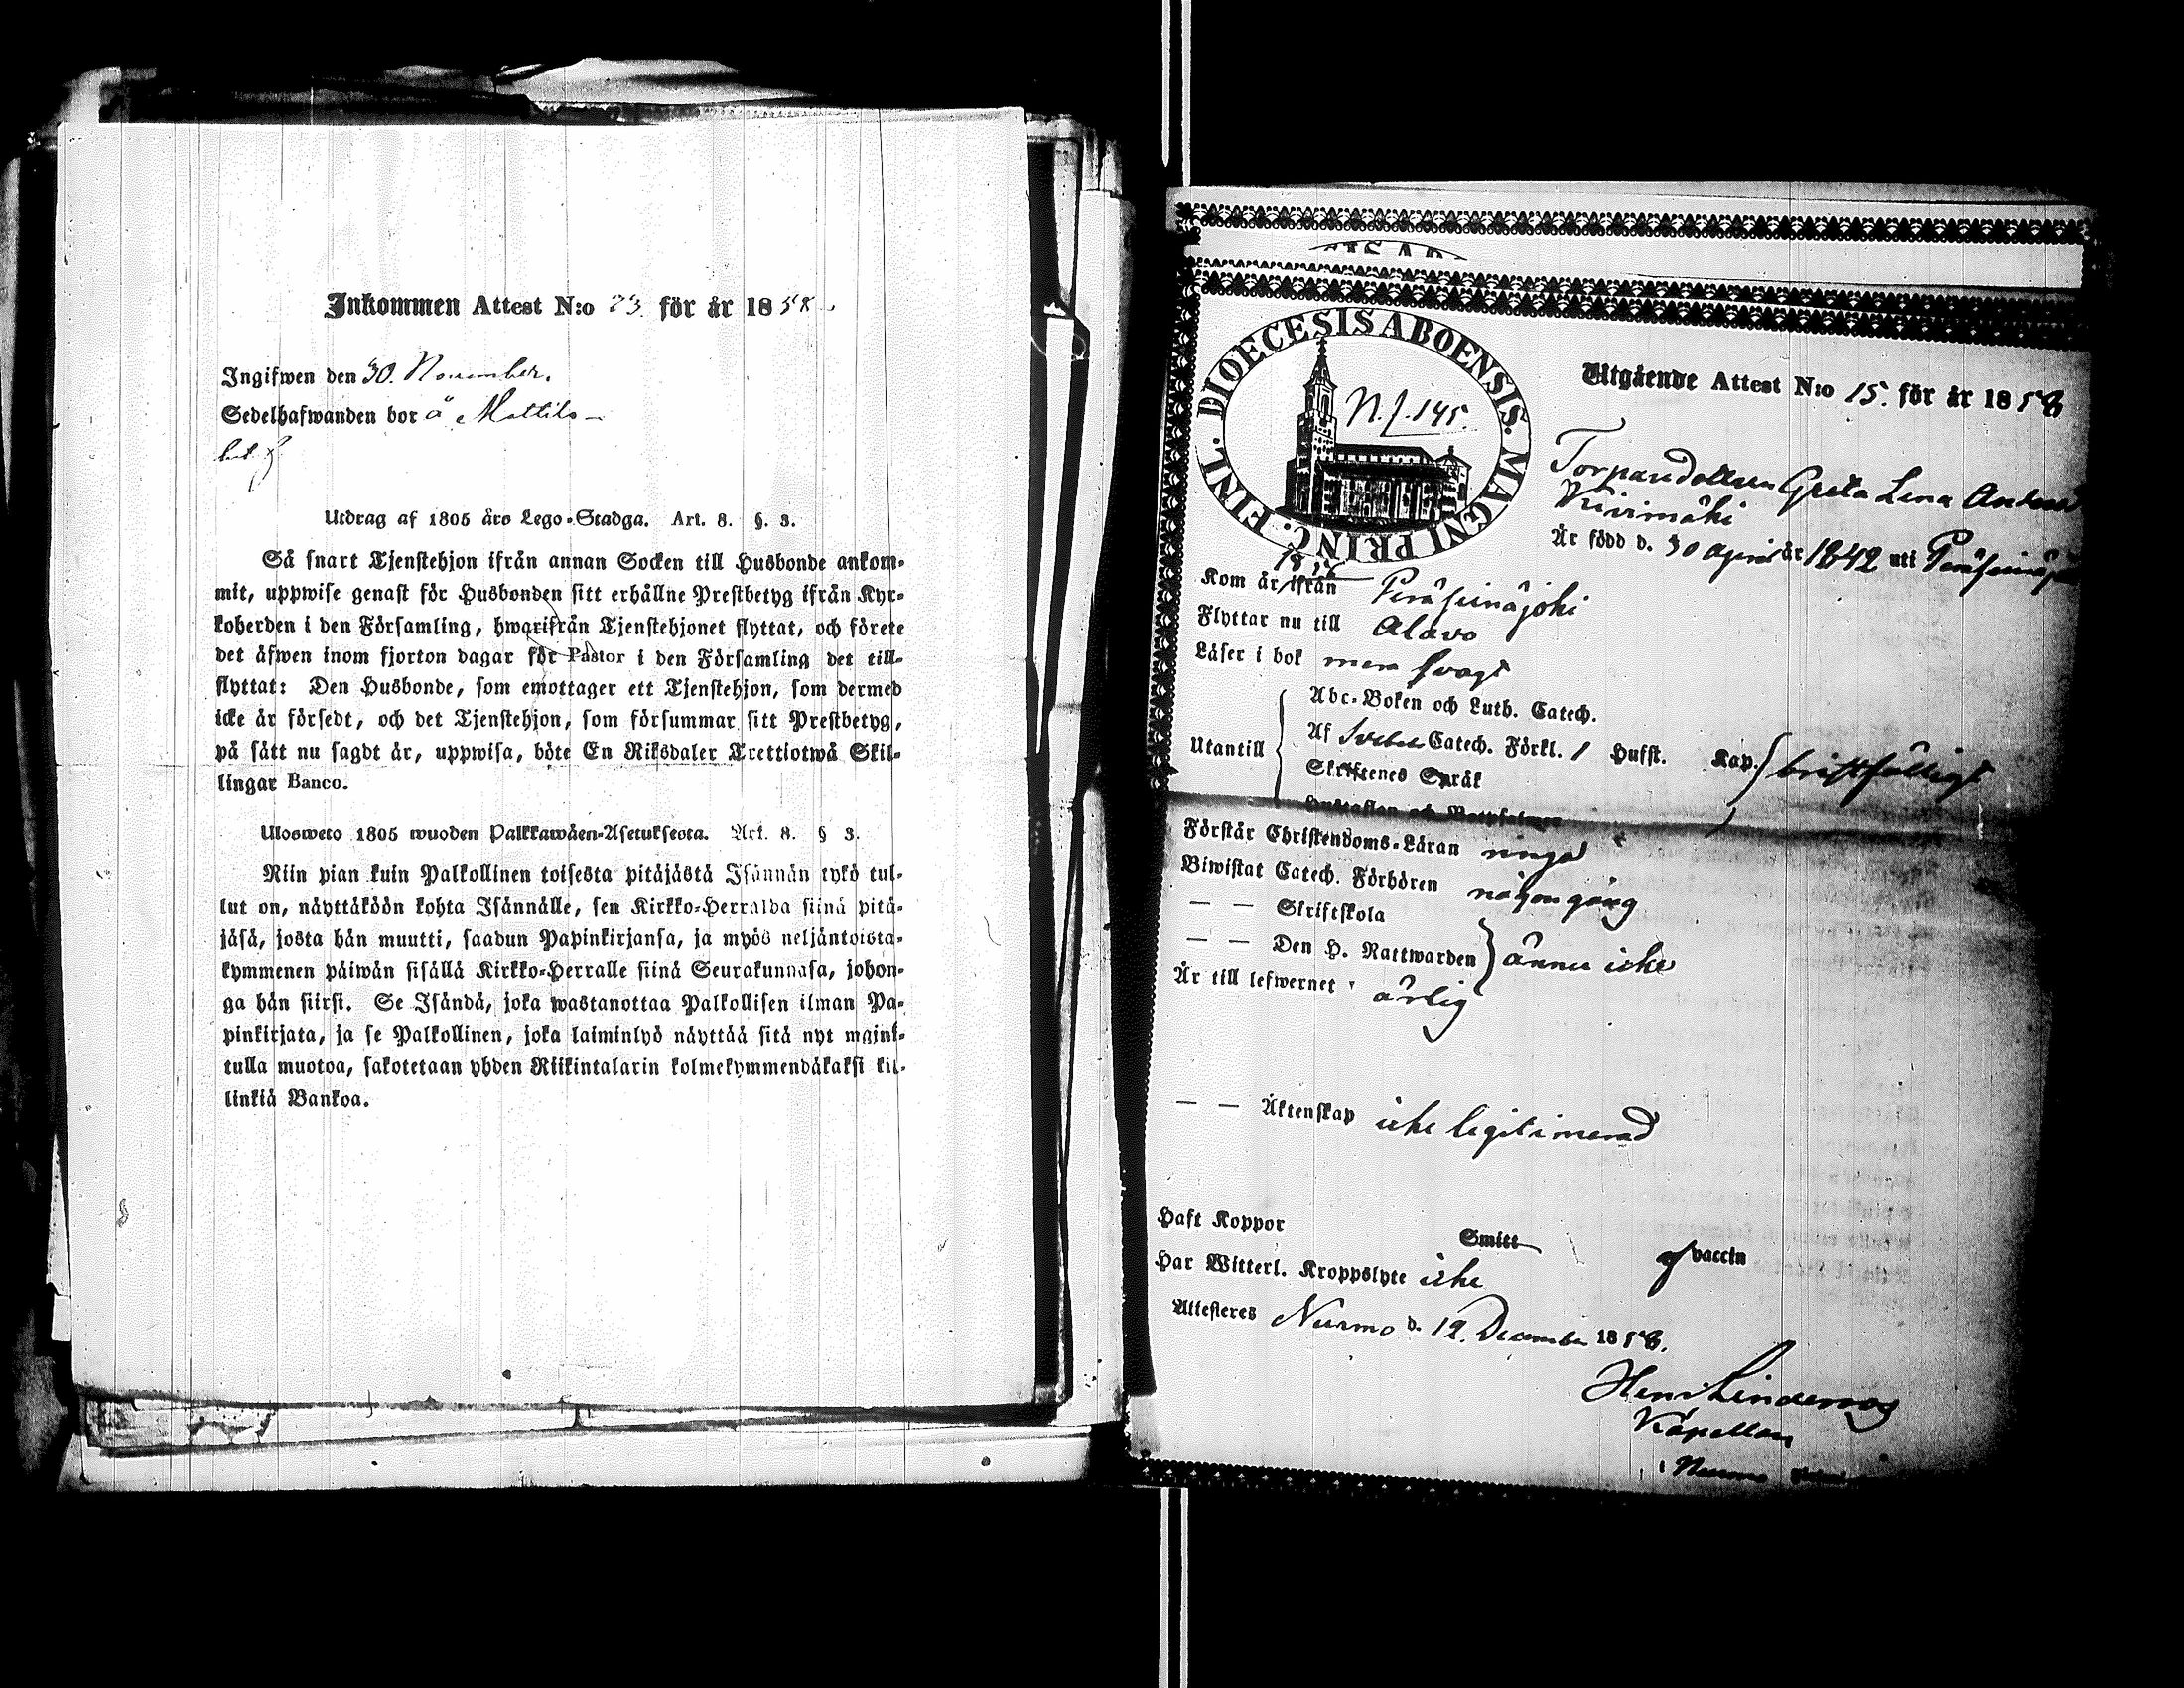 Inkommen Attest N:o 23. för år 1858.
Ingifwen den 30. November.
Sedelhafwanden bor å Mattila
Utdrag af 1805 års Lego-Stadga. Art. 8. §. 3.
Så snart Tjenstehjon ifrån annan Socken till Husbonde ankom-
mit, uppwise genast för Husbonden sitt erhållne Prestbetyg ifrån Kyr-
koherden i den Församling, hwarifrån Tjenstehjonet flyttat, och förete
det äfwen inom fjorton dagar för Pastor i den Församling det till-
flyttat: Den Husbonde, som emottager ett Tjenstehjon, som dermed
icke är försedt, och det Tjenstehjon, som försummar sitt Prestbetyg,
på sätt nu sagdt är, uppwisa, böte En Riksdaler Trettiotwå Skil-
lingar Banco.
Ulosweto 1805 wuoden Palkkawäen-Asetuksesta. Art. 8. § 3.
Niin pian kuin Palkollinen toisesta pitäjästä Isännän tykö tul-
lut on, näyttäköön kohta Isännälle, sen Kirkko-Herralda siinä pitä-
jäsä, josta hän muutti, saadun Papinkirjansa, ja myös neljäntoista-
kymmenen päiwän sisällä Kirkko-Herralle siinä Seurakunnasa, johon-
ga hän siirsi. Se Isändä, joka wastanottaa Palkollisen ilman Pa-
pinkirjata, ja se Palkollinen, joka laiminlyö näyttää sitä nyt mainit-
tulla muotoa, sakotetaan yhden Riikintalarin kolmekymmendäkaksi kil-
linkiä Bankoa.
DIOECESIS ABOENSIS. MAGNI PRINC. FINL.
N. f. 145.
Utgående Attest N:o 15. för år 1858
Torparedottren Greta Lena Anders
Kivimäki
Är född d. 30 april år 1842 uti Peräseinäjo
Kom år 18 ifrån Peräseinäjoki
Flyttar nu till Alavo
Läser i bok mera svagt
Utantill
Abc-Boken och Luth. Catech.
Af Svebel Catech. Förkl. 1 Hufst. Kap.
Skriftenes Språk
bristfälligt
Hustaflan och Botpsalmer
Förstår Christendoms-Läran ringa
Biwistat Catech. Förhören någon gång
— — Skriftskola
— — Den H. Nattwarden ännu icke
Är till lefwernet ärlig
— — Äktenskap icke legitimerad
Haft Koppor Smitt af vaccin
Har Witterl. Kroppslyte icke
Attesteres Nurmo d. 12. December 1858.
Henr Linderoos
Kapellan
i Nurmo